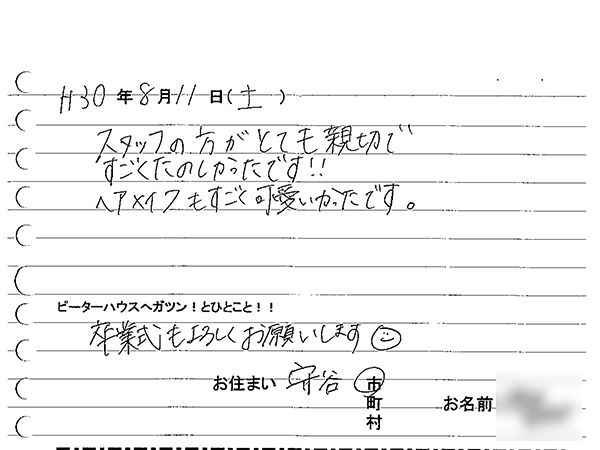 H30年8月11日(土)
スタッフの方がとても親切で
すごくたのしかったです!!
ヘアメイクもすごく可愛いかったです。
ピーターハウスへガツン!とひとこと!!
卒業式もよろしくお願いします☺
お住まい 守谷 市 お名前
町
村